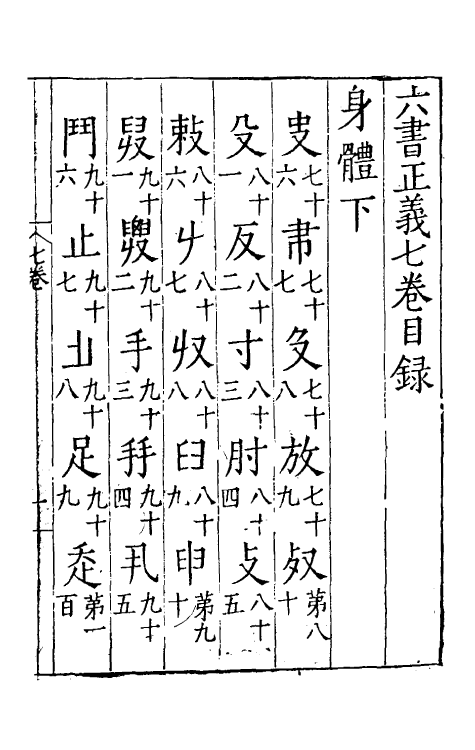 六書正義七卷目錄
身體下
七十六 帇七十七 七十八 放七十九 第八十
殳八十一 反八十二 寸八十三 肘八十四 攴八十五
八十六 𠂇八十七 収八十八 臼八十九 申第九十
九十一 九十二 手九十三 九十四 丮九十五
鬥九十六 止九十七 九十八 足九十九 第一百
七卷 一